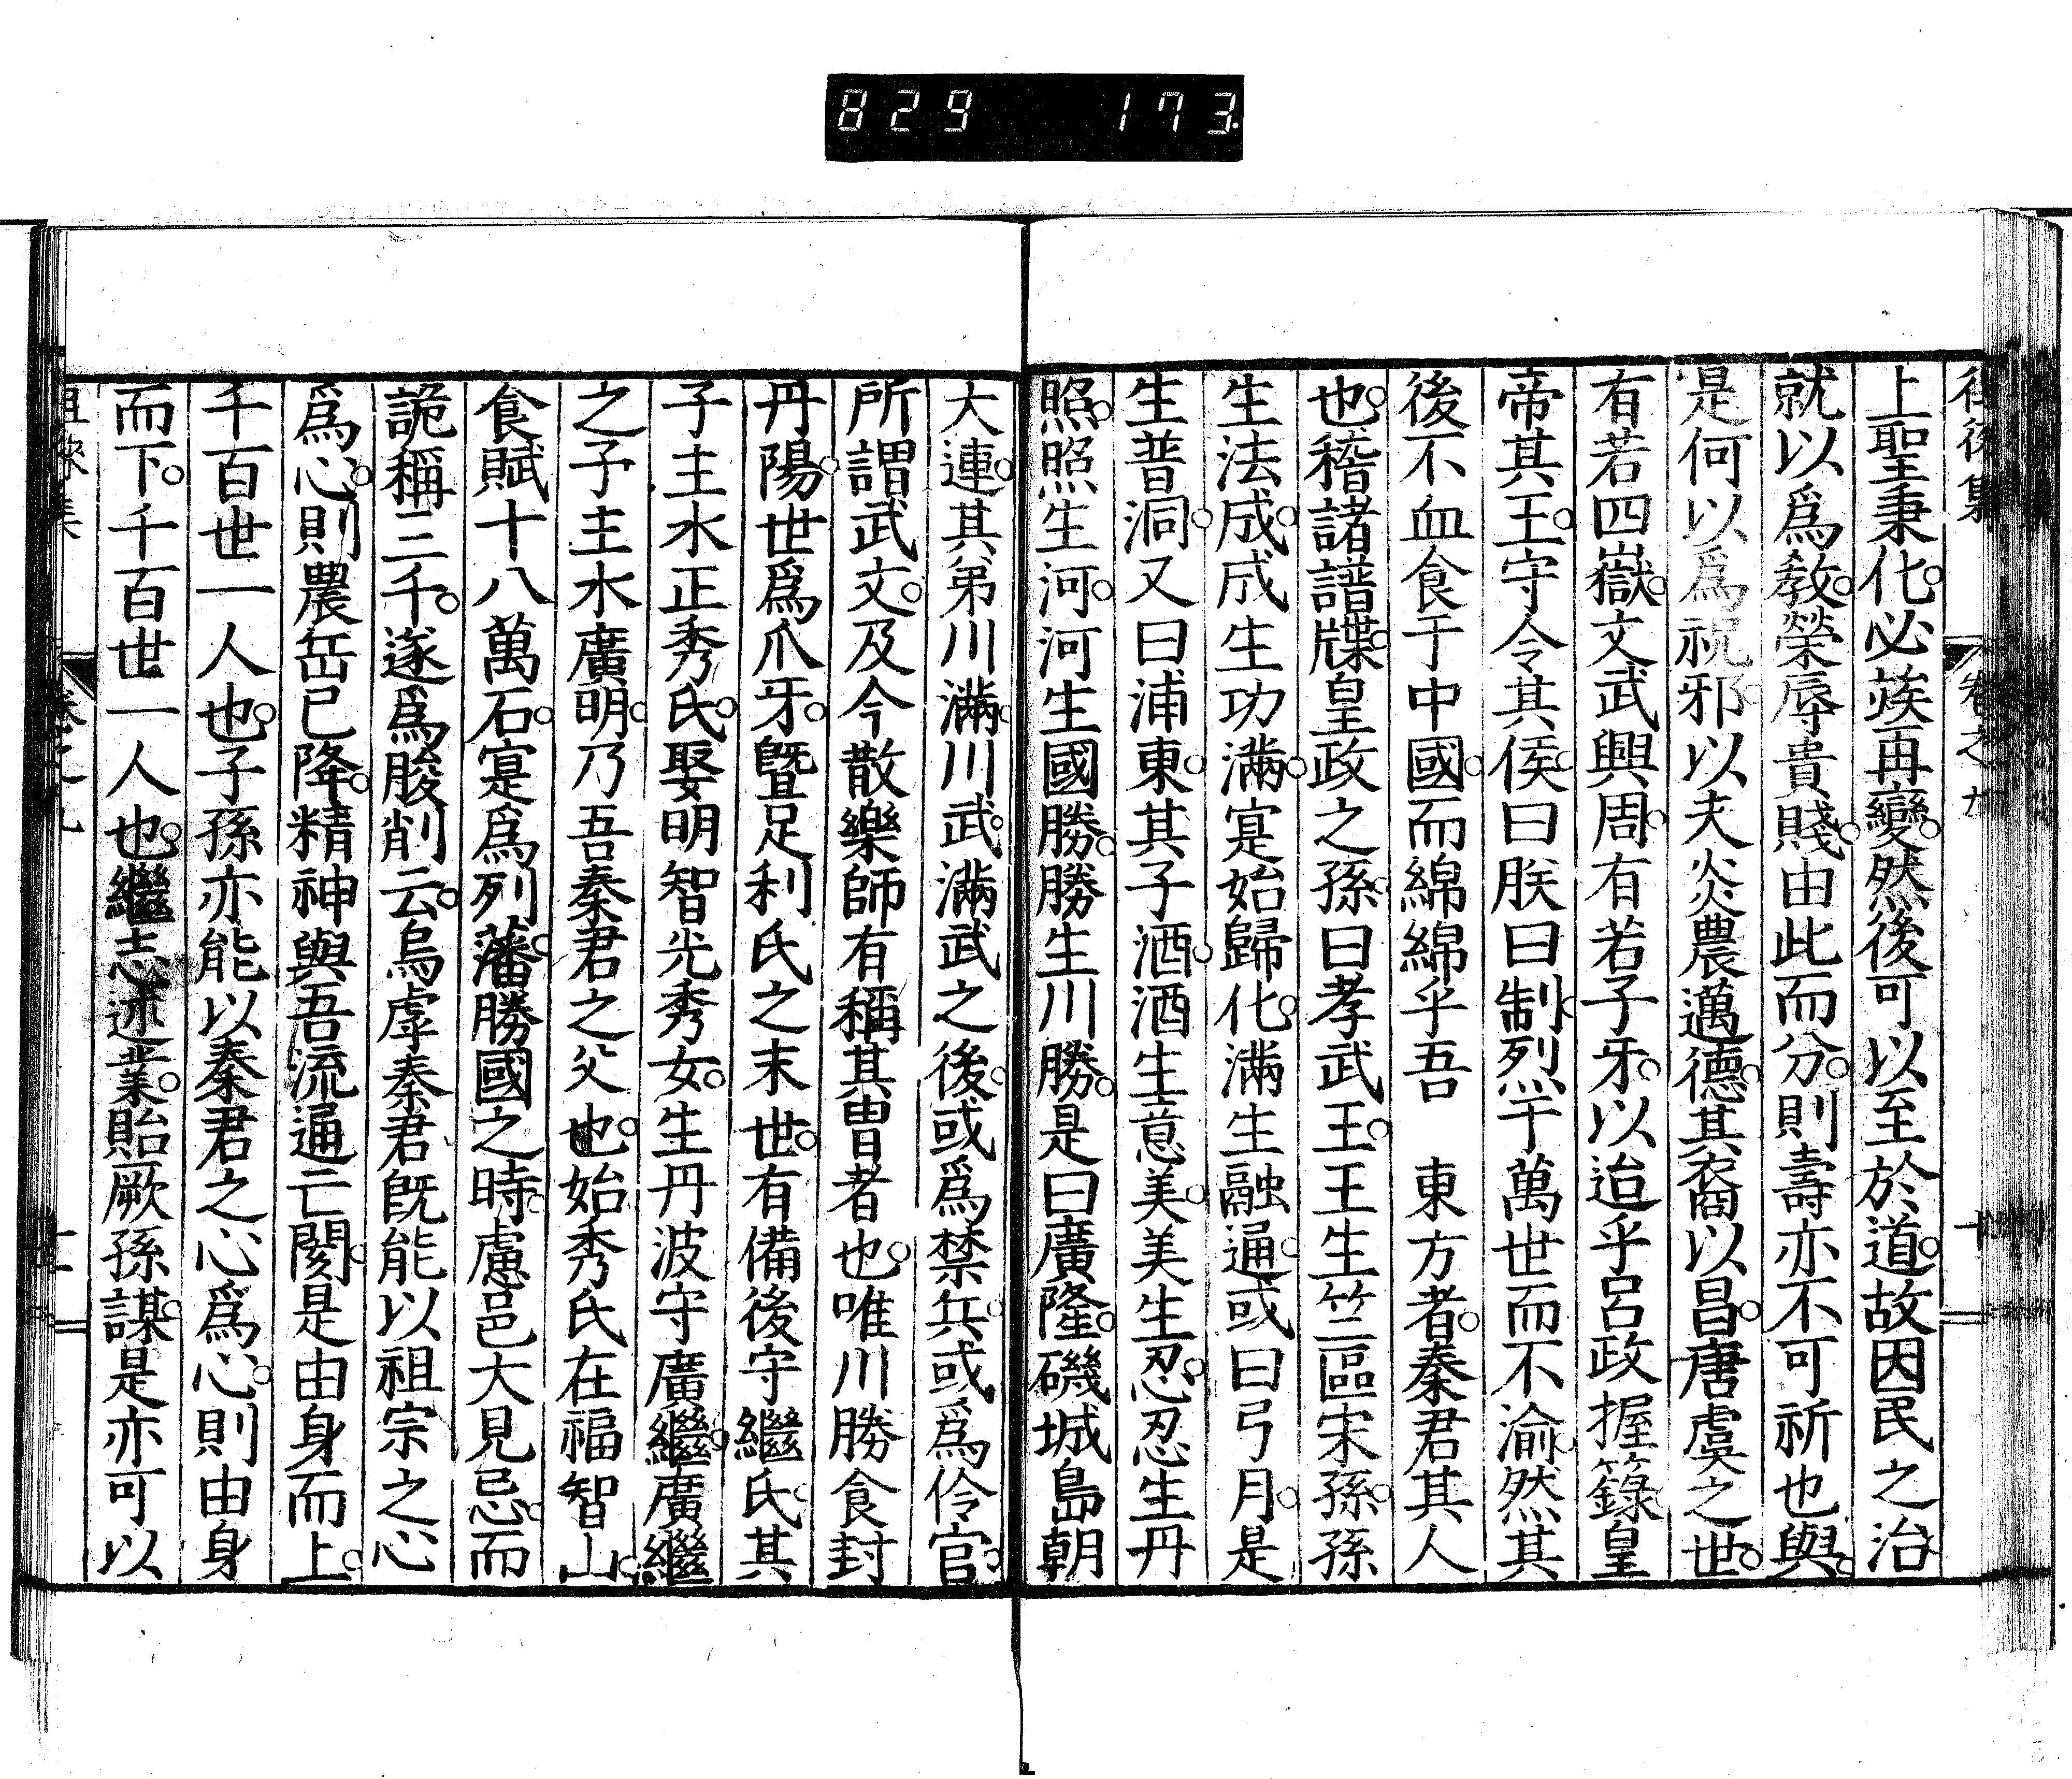 829 173.
上聖秉化。必竢再變。然後可以至於道。故因民之治
就以爲教。榮辱貴賤。由此而分。則壽亦不可祈也與。
是何以爲祝邪。以夫炎農邁德。其裔以昌。唐虞之世。
有若四嶽。文武興周。有若子牙。以迨乎呂政握籙。皇
帝其王。守令其侯。曰朕曰制。烈于萬世而不渝。然其
後不血食于中國。而綿綿乎吾 東方者。秦君其人
也。稽諸譜牒。皇政之孫。曰孝武王。王生竺區宋孫。孫
生法成。成生功滿。寔始歸化。滿生融通。或曰弓月。是
生普洞。又曰浦東。其子酒。酒生意美。美生忍。忍生丹
照。照生河。河生國勝。勝生川勝。是曰廣隆。磯城島朝
大連。其弟川滿。川武。滿武之後。或爲禁兵。或爲伶官。
所謂武文。及今散樂師有稱其冑者也。唯川勝食封
丹陽。世爲爪牙。曁足利氏之末世。有備後守繼氏。其
子主水正秀氏。娶明智光秀女。生丹波守廣繼。廣繼
之子主水廣明。乃吾秦君之父也。始秀氏在福智山。
食賦十八萬石。寔爲列藩。勝國之時。慮邑大見忌。而
詭稱三千。遂爲朘削云。烏虖秦君既能以祖宗之心
爲心。則農岳已降。精神與吾流通亡閡。是由身而上。
千百世一人也。子孫亦能以秦君之心爲心。則由身
而下。千百世一人也。繼志述業。貽厥孫謀。是亦可以